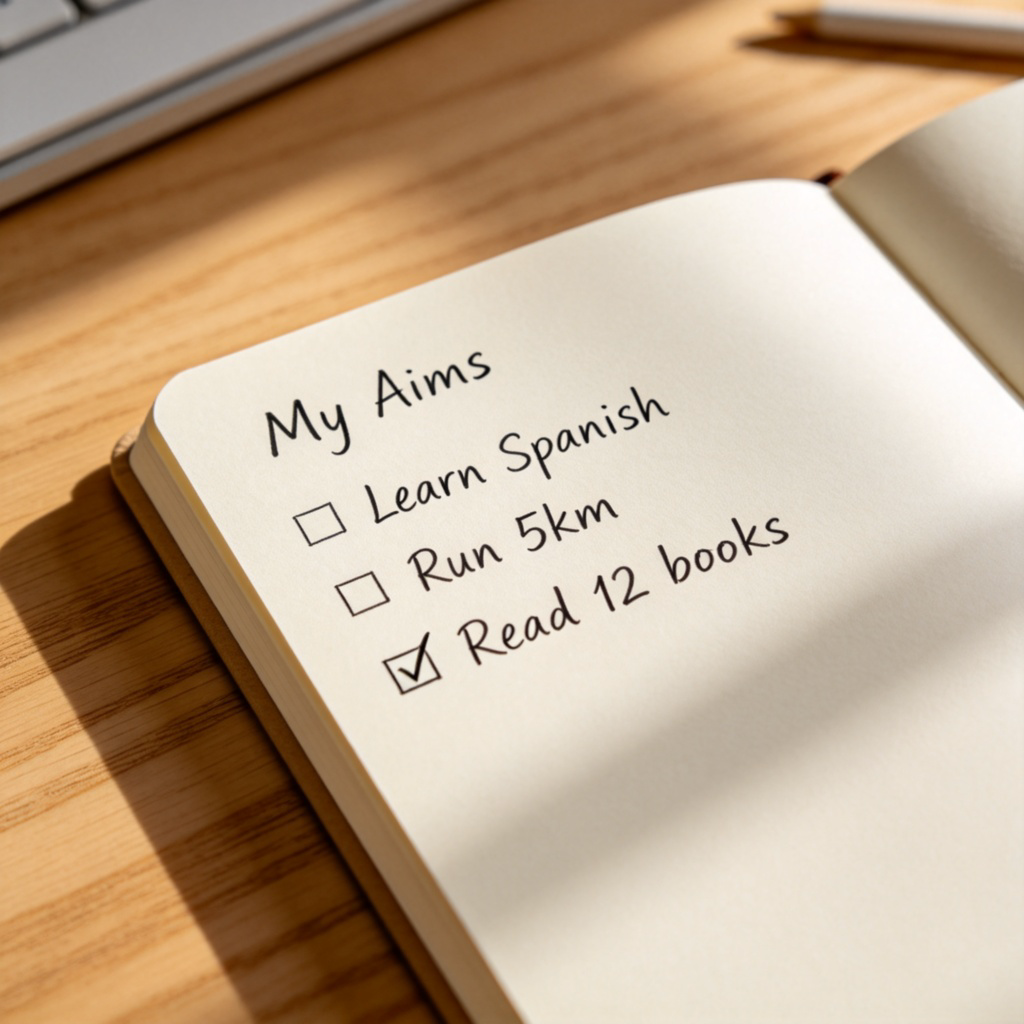 My Aims
☐ Learn Spanish
☐ Run 5km
☑ Read 12 books